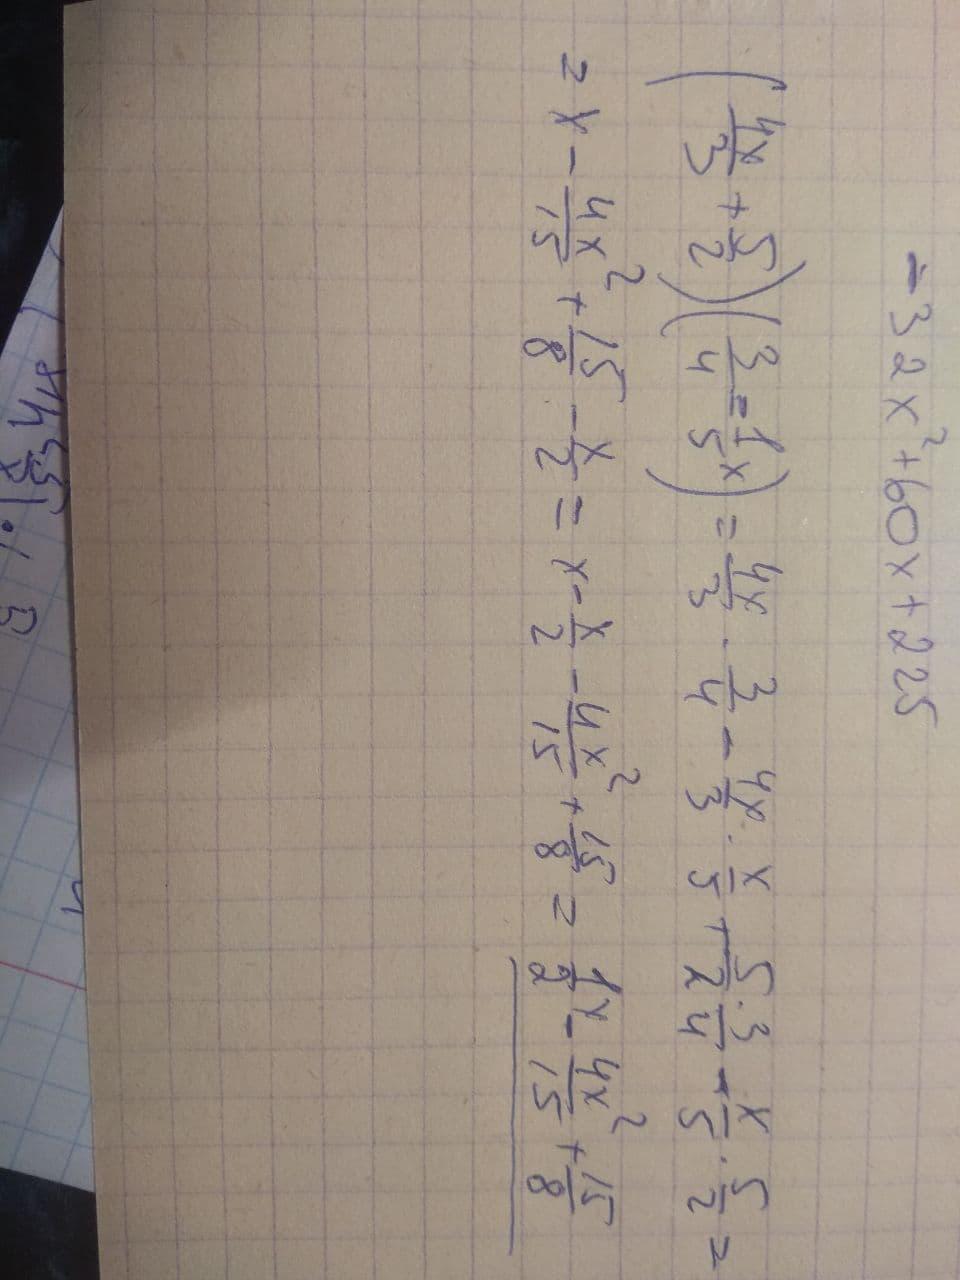 -32x²+60x+225
(4x/3 + 5/2)(3/4 - 1/5 x) = 4x/3 · 3/4 - 4x/3 · x/5 + 5/2 · 3/4 - x/5 · 5/2 =
= x - 4x²/15 + 15/8 - x/2 = x - x/2 - 4x²/15 + 15/8 = 1/2 x - 4x²/15 + 15/8